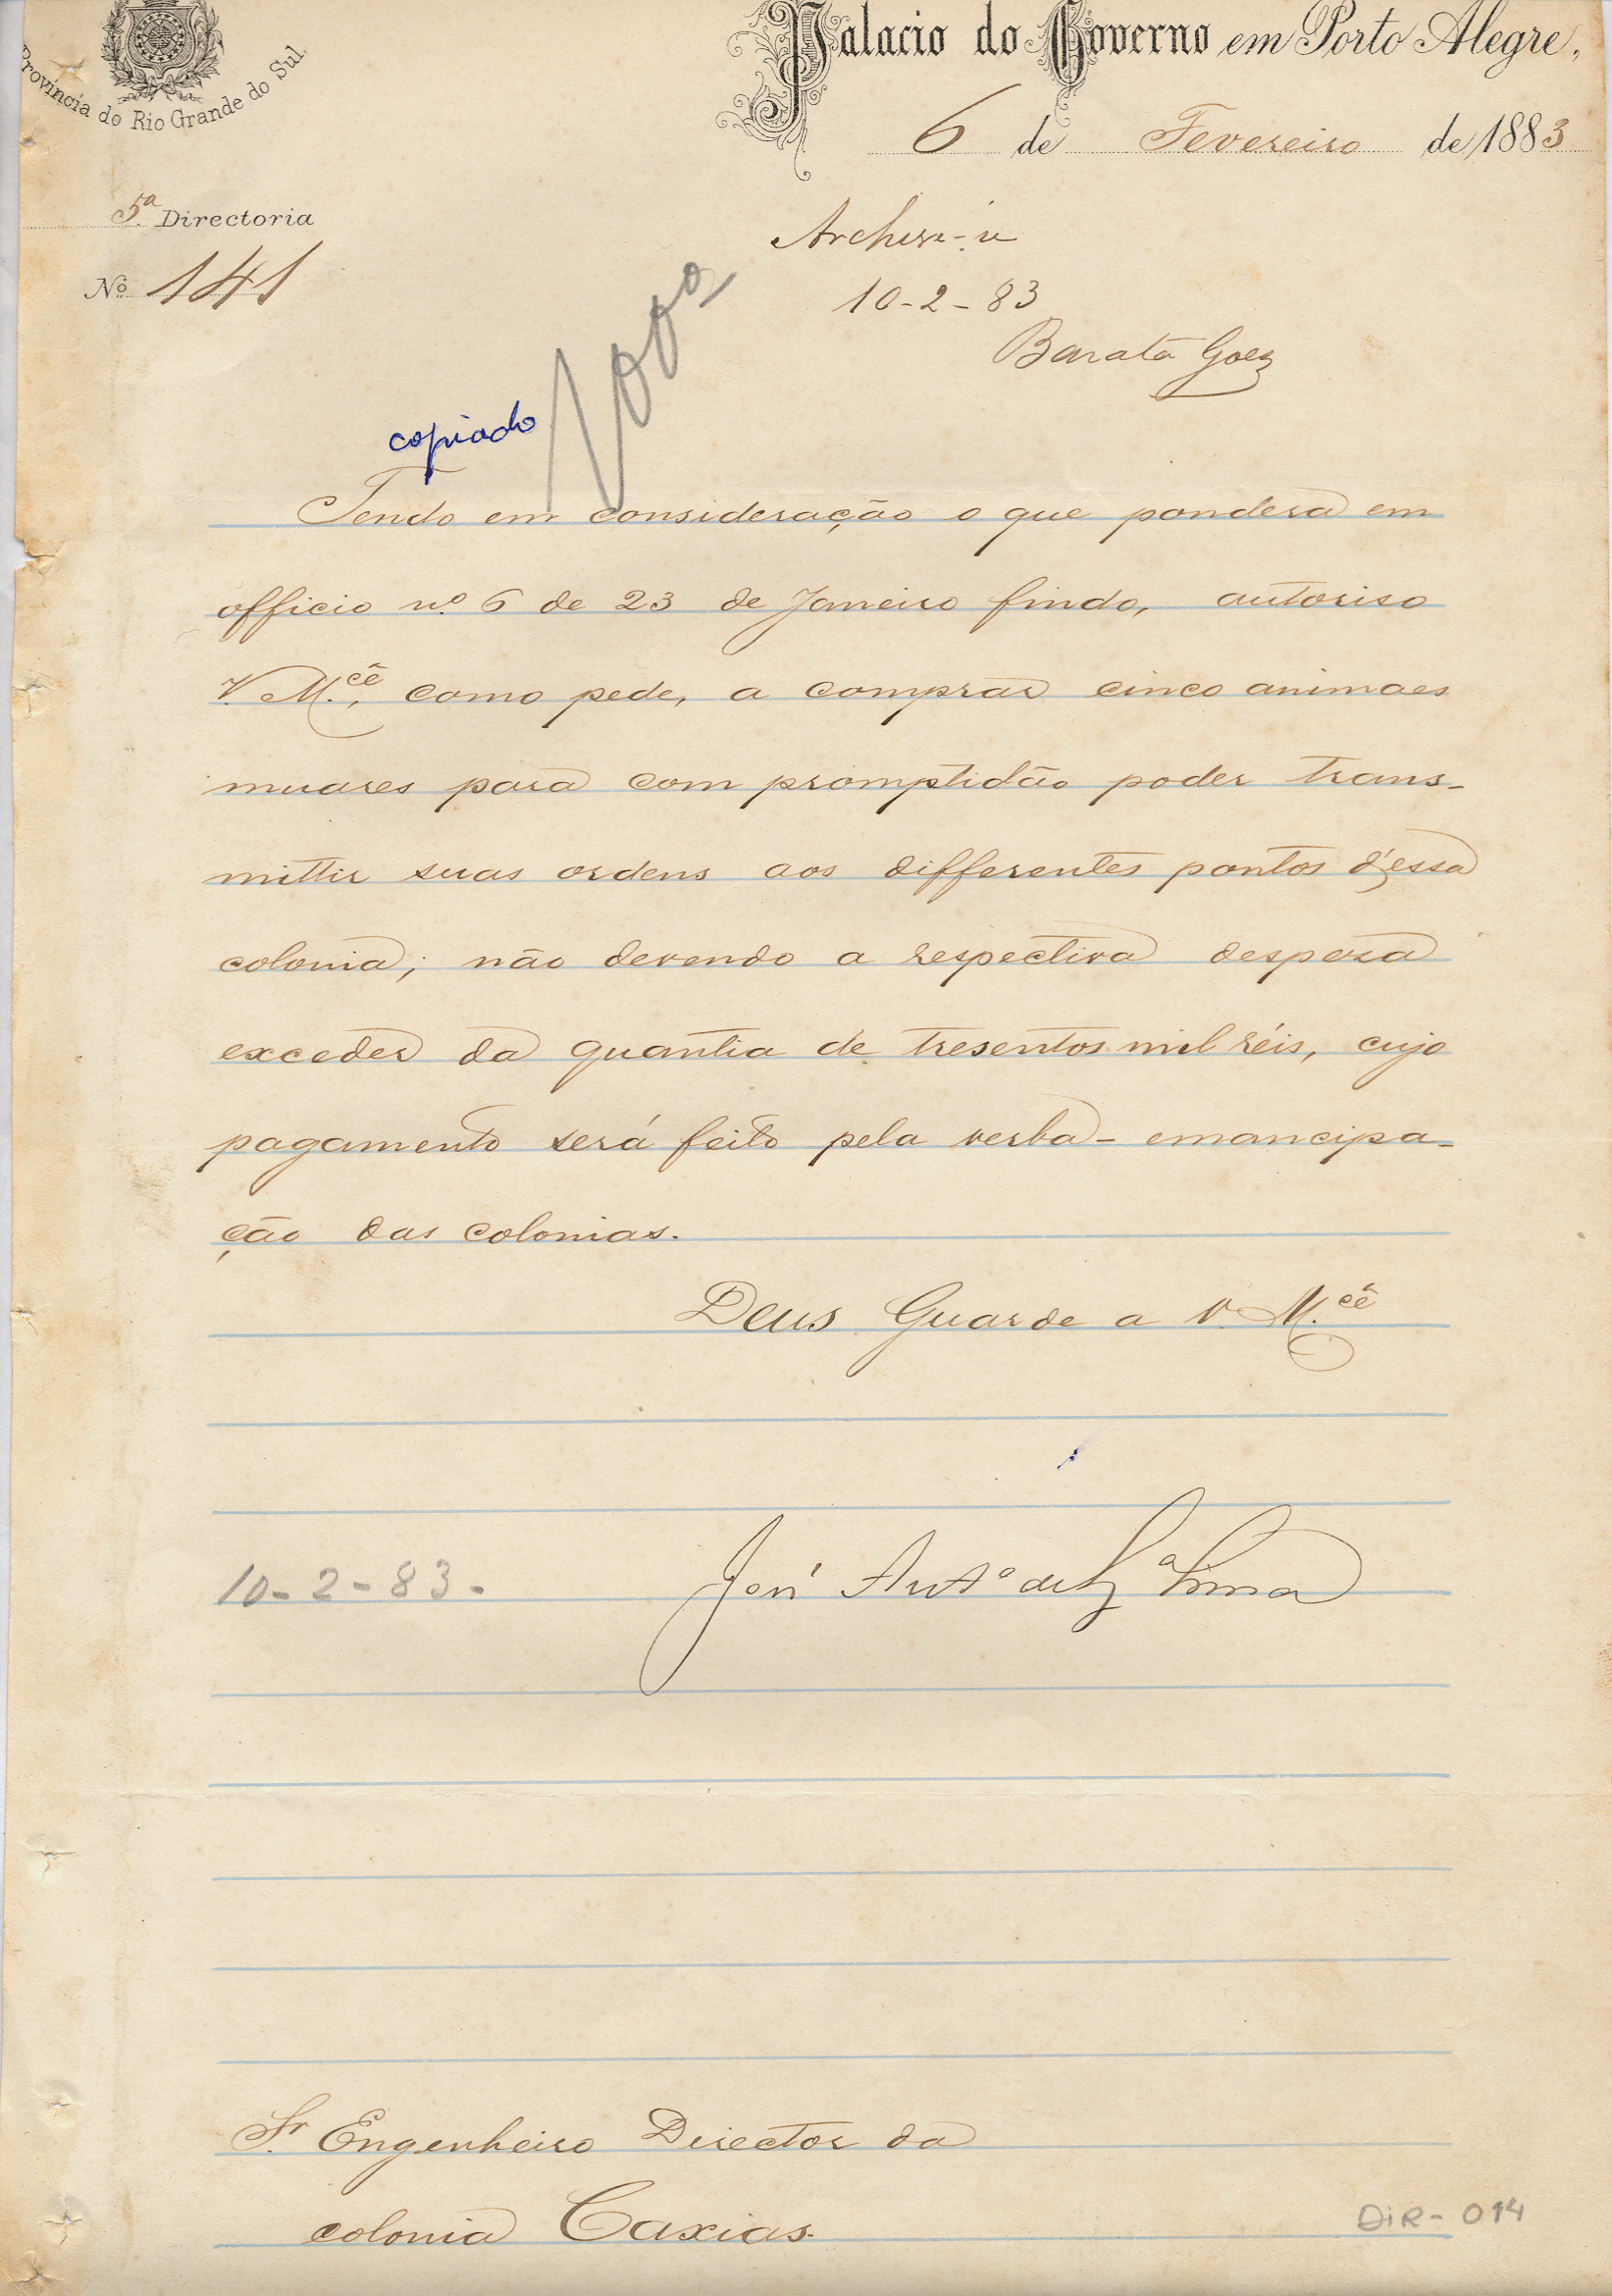 Provincia do Rio Grande do Sul
Palacio do Governo em Porto Alegre,
6 de Fevereiro de 1883
5ª Directoria
Nº 141
Archive-se
10-2-83
Barata Goes
copiado
Tendo em consideração o que pondera em
officio nº 6 de 23 de Janeiro findo, autoriso
V. M.cê, como pede, a comprar cinco animaes
muares para com promptidão poder trans-
mittir suas ordens aos differentes pontos d'essa
colonia; não devendo a respectiva despesa
exceder da quantia de tresentos mil réis, cujo
pagamento será feito pela verba - emancipa-
ção das colonias.
Deus Guarde a V. M.cê
10-2-83-
José Antº de Lima
Sr Engenheiro Director da
colonia Caxias.
DIR-014